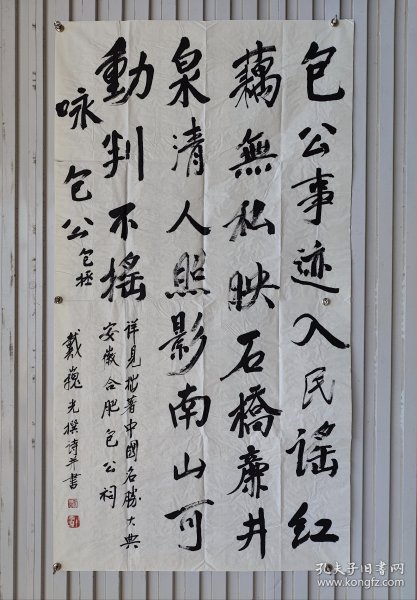 包公事迹入民谣红
藕無私映石橋廉井
泉清人照影南山可
動判不搖
詠包公包拯
详見拙著中國名勝大典
安徽合肥包公祠
戴巍光撰詩并書
孔夫子旧书网
www.kongfz.com